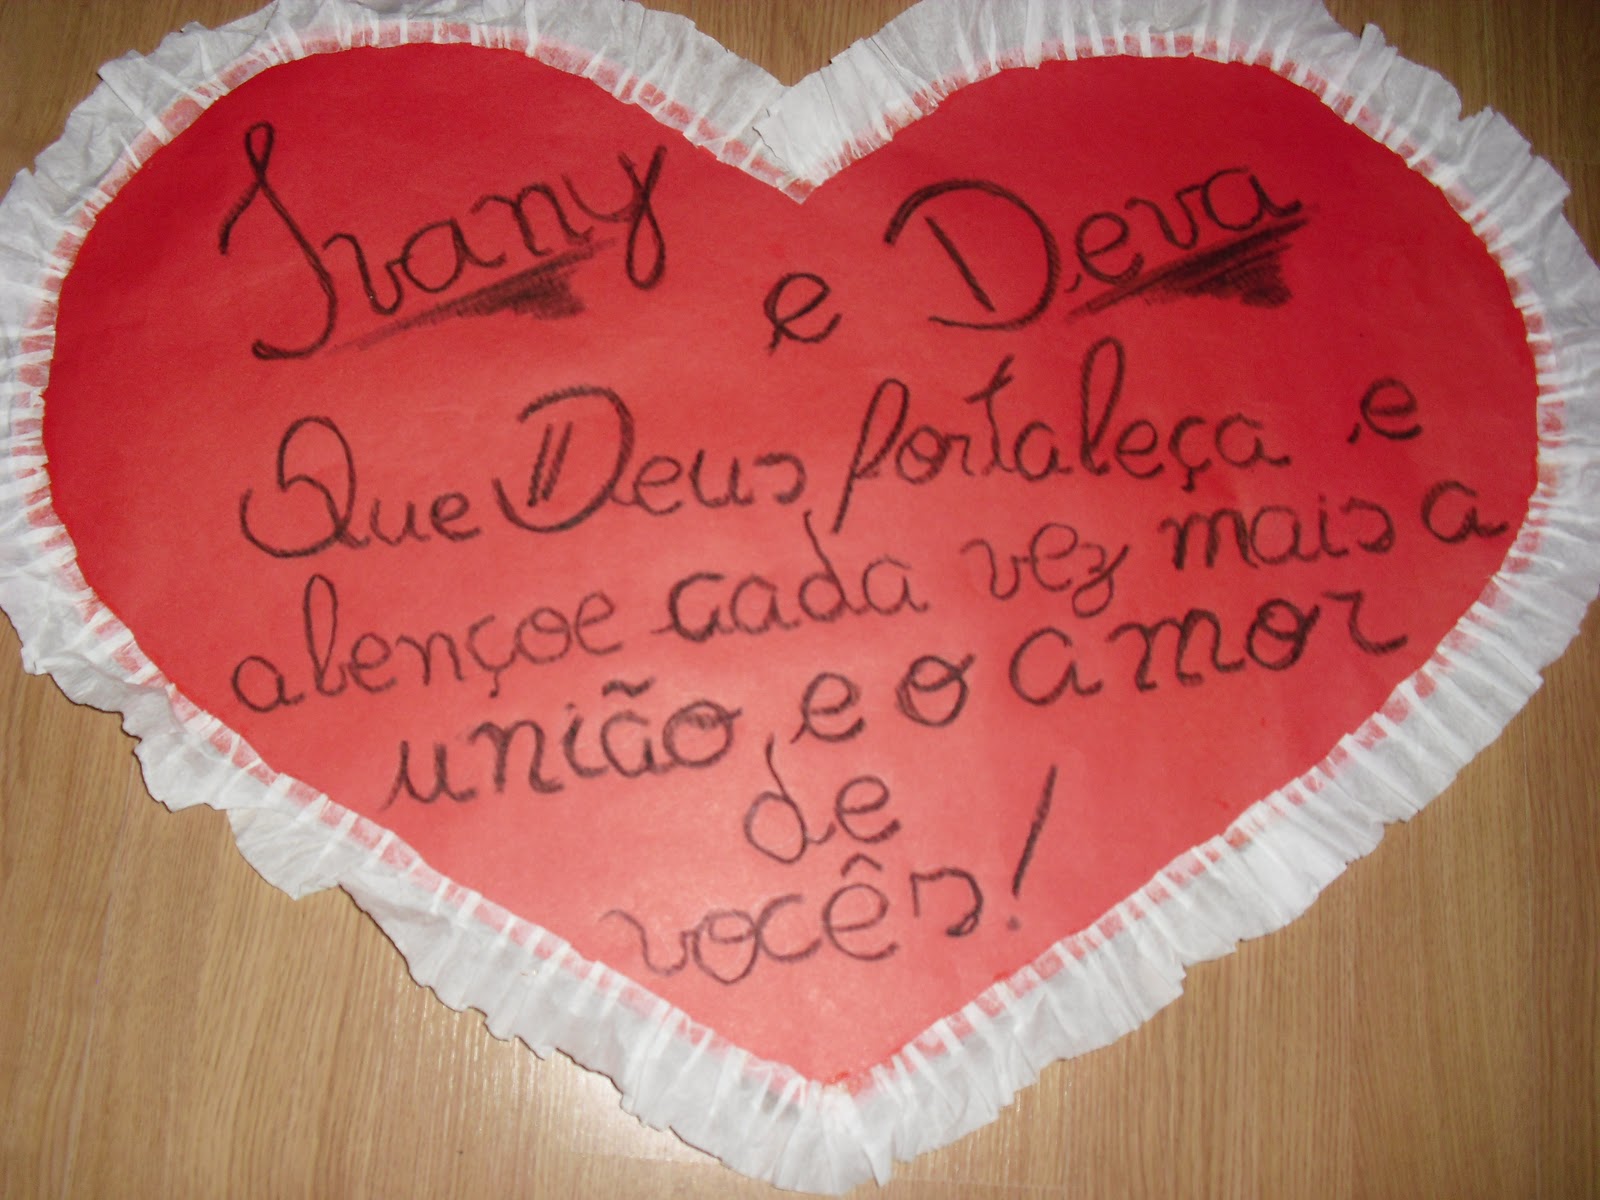 Ivany e Deva
Que Deus fortaleça e
abençoe cada vez mais a
união e o amor
de
vocês!